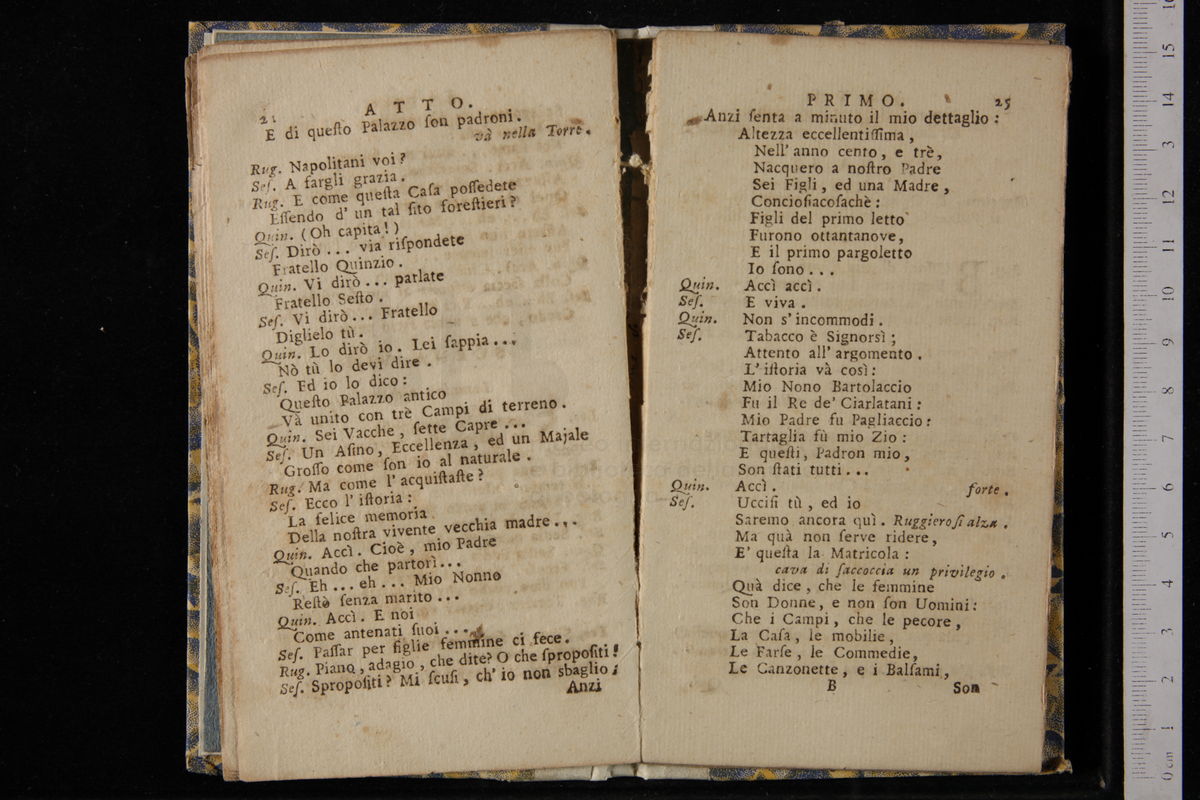 ATTO.
E di queſto Palazzo ſon padroni.
và nella Torre.
Rug. Napolitani voi?
Seſ. A fargli grazia.
Rug. E come queſta Caſa poſſedete
Eſſendo d' un tal ſito foreſtieri?
Quin. (Oh capita!)
Seſ. Dirò ... via riſpondete
Fratello Quinzio.
Quin. Vi dirò ... parlate
Fratello Seſto.
Seſ. Vi dirò ... Fratello
Diglielo tù.
Quin. Lo dirò io. Lei ſappia ...
Nò tù lo devi dire.
Seſ. Ed io lo dico:
Queſto Palazzo antico
Và unito con trè Campi di terreno.
Quin. Sei Vacche, ſette Capre ...
Seſ. Un Aſino, Eccellenza, ed un Majale
Groſſo come ſon io al naturale.
Rug. Ma come l' acquiſtaſte?
Seſ. Ecco l' iſtoria:
La felice memoria
Della noſtra vivente vecchia madre ...
Quin. Accì. Cioè, mio Padre
Quando che partorì ...
Seſ. Eh ... eh ... Mio Nonno
Reſtò ſenza marito ...
Quin. Accì. E noi
Come antenati ſuoi ...
Seſ. Paſſar per figlie femmine ci fece.
Rug. Piano, adagio, che dite? O che ſpropoſiti!
Seſ. Spropoſiti? Mi ſcuſi, ch' io non sbaglio;
Anzi
PRIMO. 25
Anzi ſenta a minuto il mio dettaglio:
Altezza eccellentiſſima,
Nell' anno cento, e trè,
Nacquero a noſtro Padre
Sei Figli, ed una Madre,
Concioſiacoſachè:
Figli del primo letto
Furono ottantanove,
E il primo pargoletto
Io ſono ...
Quin. Accì accì.
Seſ. E viva.
Quin. Non s' incommodi.
Seſ. Tabacco è Signorsì;
Attento all' argomento.
L' iſtoria và così:
Mio Nono Bartolaccio
Fu il Re de' Ciarlatani:
Mio Padre fu Pagliaccio:
Tartaglia fù mio Zio:
E queſti, Padron mio,
Son ſtati tutti ...
Quin. Accì. forte.
Seſ. Ucciſi tù, ed io
Saremo ancora quì. Ruggiero ſi alza.
Ma quà non ſerve ridere,
E' queſta la Matricola:
cava di ſaccoccia un privilegio.
Quà dice, che le femmine
Son Donne, e non ſon Uomini:
Che i Campi, che le pecore,
La Caſa, le mobilie,
Le Farſe, le Commedie,
Le Canzonette, e i Balſami,
B Son